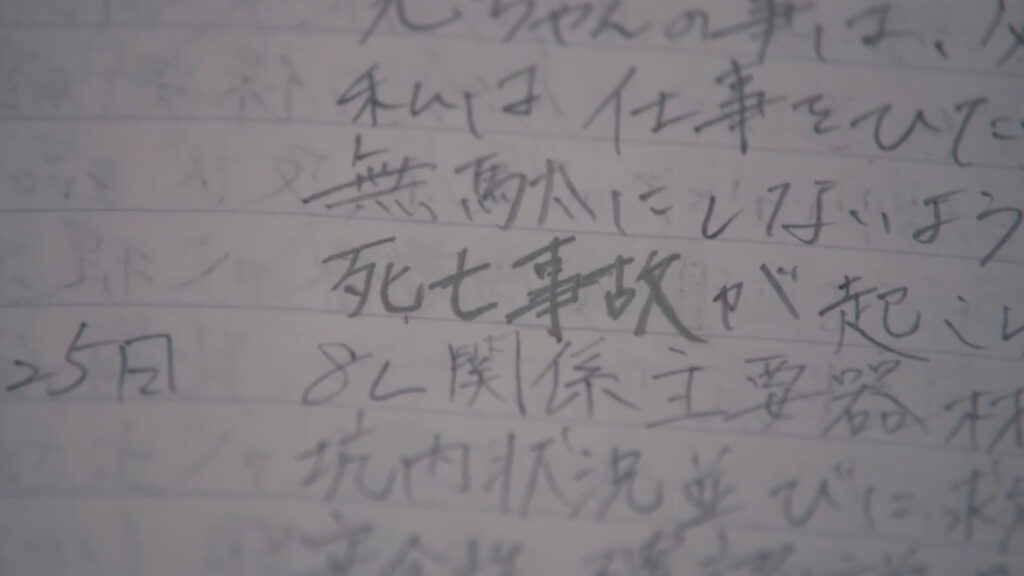 ちゃんの事は、
私は仕事をひた
無駄にしないよう
死亡事故が起こし
25日 8L関係主要器材
坑内状況並びに